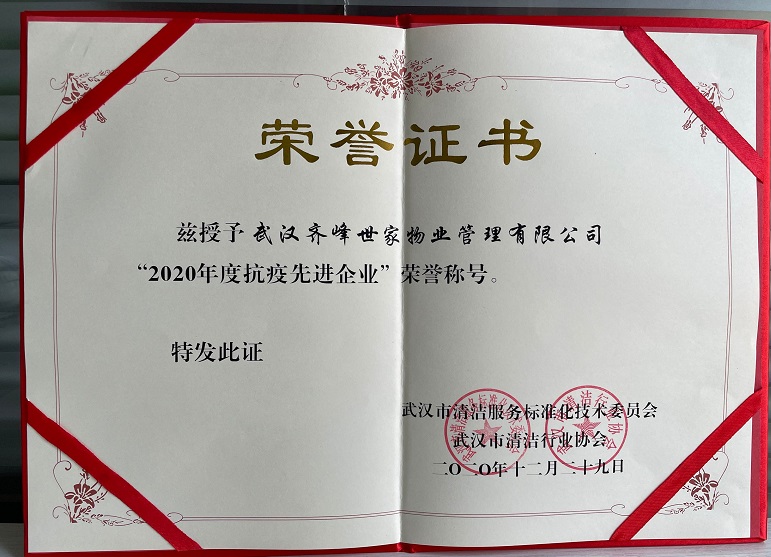 荣誉证书
兹授予 武汉齐峰世家物业管理有限公司
“2020年度抗疫先进企业”荣誉称号。
特发此证
武汉市清洁服务标准化技术委员会
武汉市清洁行业协会
二〇二〇年十二月二十九日